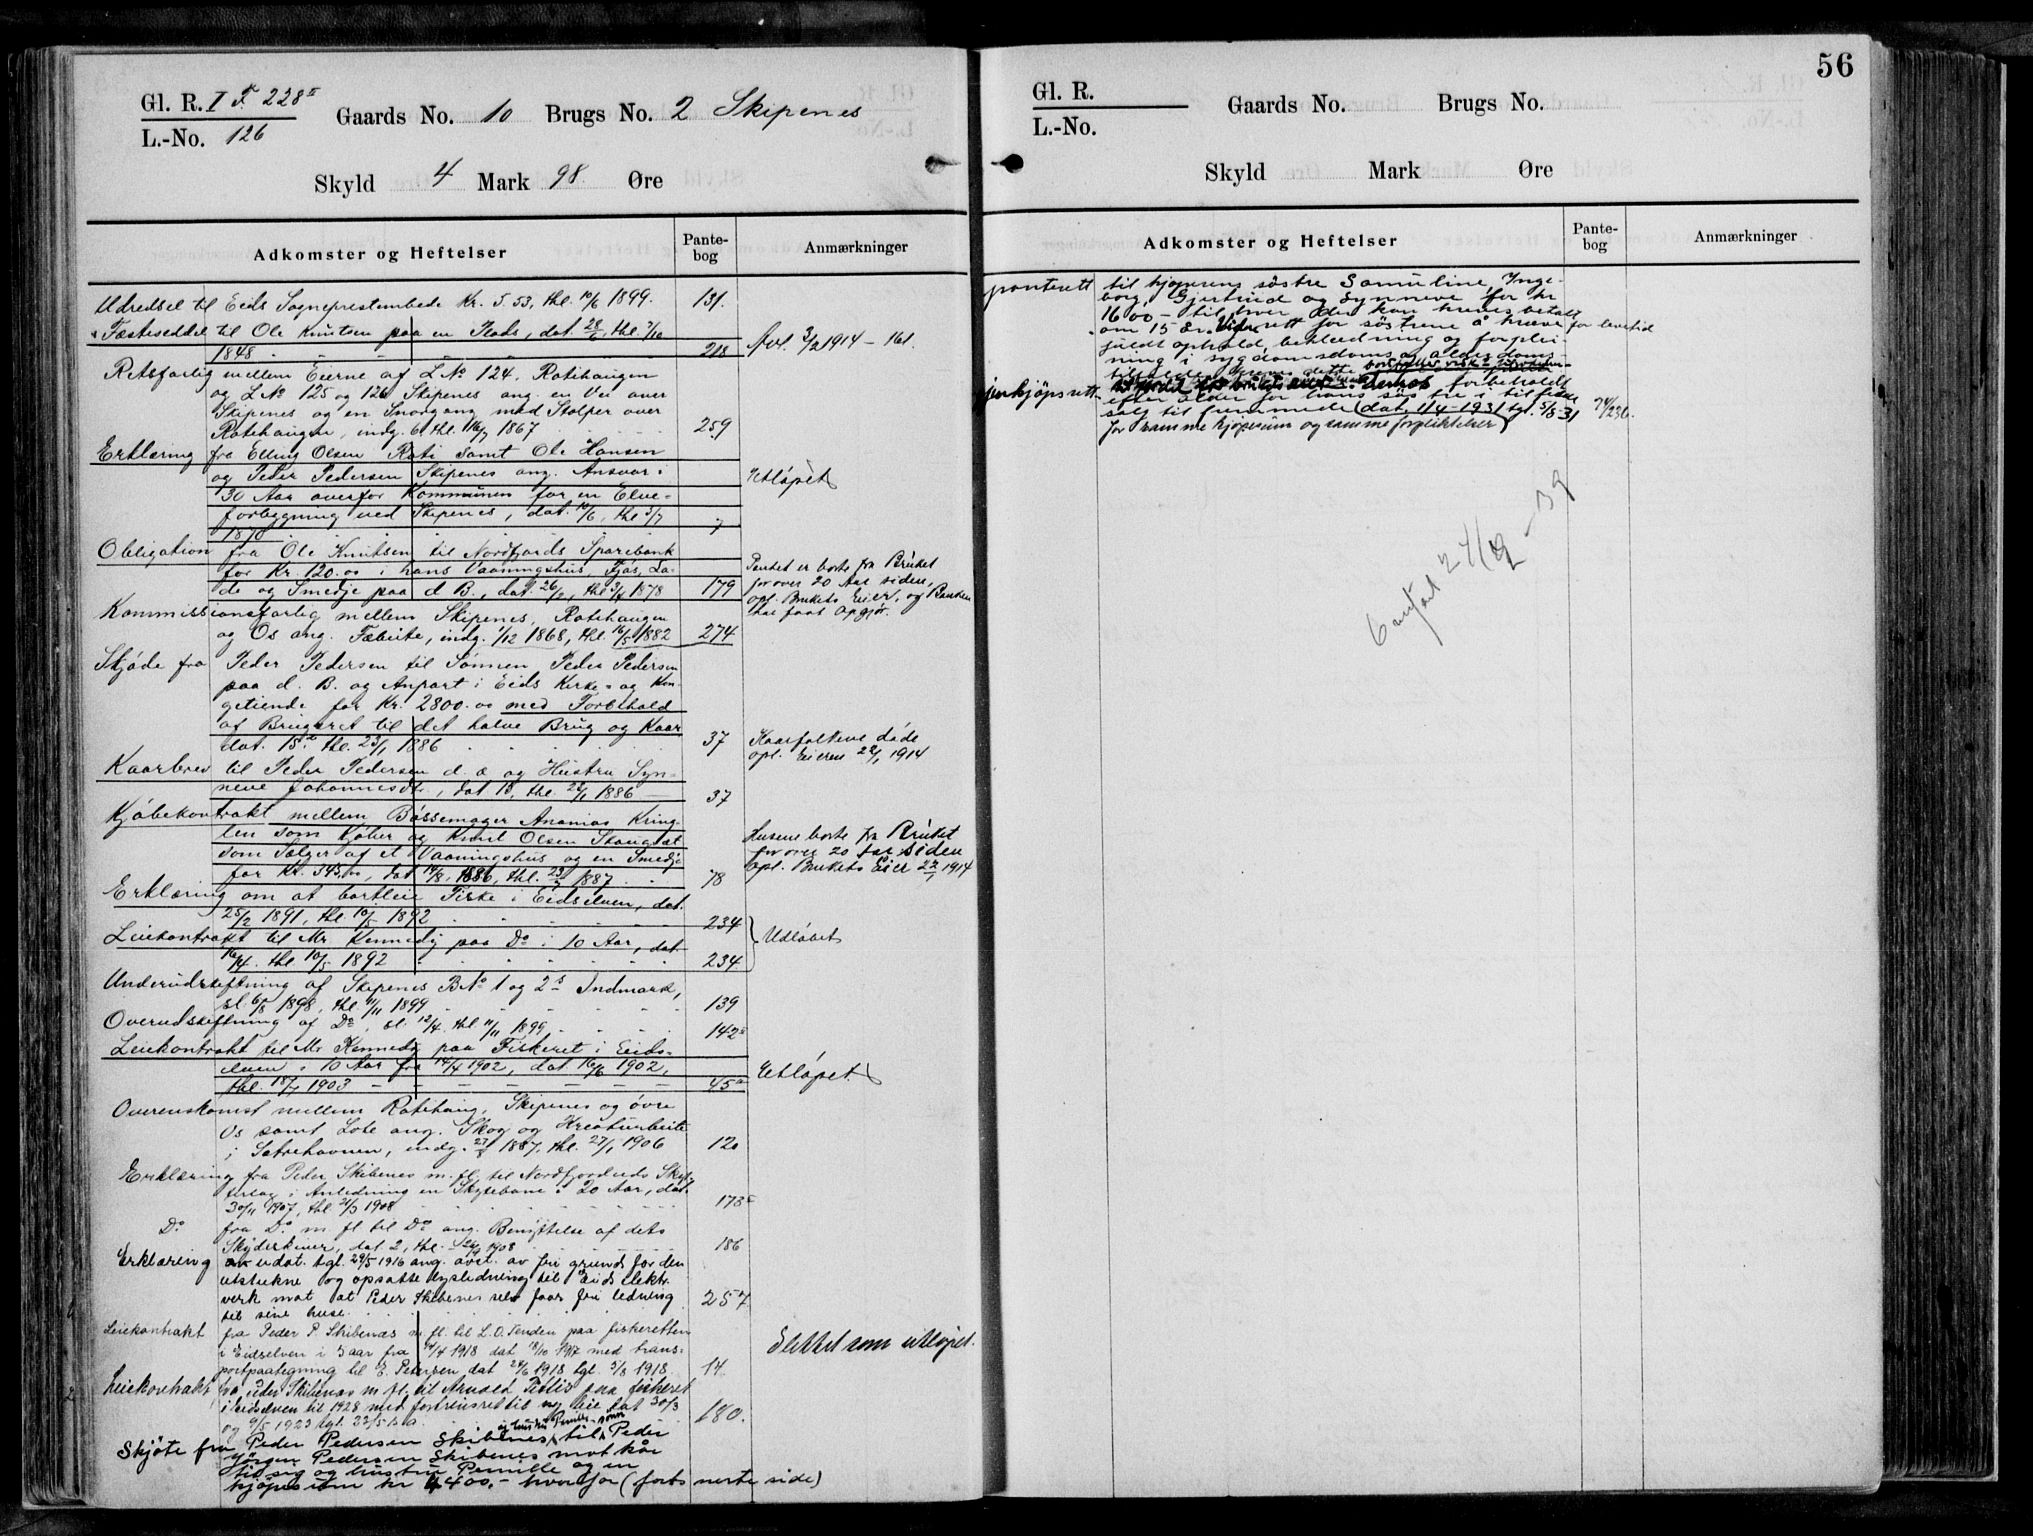 Gl. R. I F. 228 II
L.-No. 126
Gaards No. 10 Brugs No. 2 Skipenes
Skyld 4 Mark 98 Øre
Adkomster og Heftelser Pante-bog Anmærkninger
Udredsel til Eids Sogneprestembede Kr. 5.53, thl. 10/6 1899. 131.
Fæsteseddel til Ole Knutsen paa en Plads, dat. 28/6, thl. 7/10 Avl. 3/2 1914 – 161.
1848 218
Retsforlig mellem Eierne af L.No. 124. Rotihaugen
og L.No. 125 og 126 Skipenes ang. en Vei over
Skipenes og en Snorgang med Stolper over
Rotehaugen, indg. 6. thl. 16/7 1867 259
Erklæring fra Elling Olsen Roti samt Ole Hansen
og Peder Pedersen Skipenes ang. Ansvar i Utløpet
30 Aar overfor Kommunen for en Elve-
forbygning ved Skipenes, dat. 10/6, thl. 3/7
1870 7
Obligation fra Ole Knutsen til Nordfjords Sparebank
for Kr. 120.00 i hans Vaaningshus, Fjøs, La- Pantet er borte fra Bruket
de og Smedje paa d B., dat. 26/2, thl. 3/4 1878 179 for over 20 Aar siden,
opl. Brukets Eier, og Banken
har faat Opgjør.
Kommissionsforlig mellem Skipenes, Rotehaugen
og Os ang. Fæbeite, indg. 1/12 1868, thl. 16/5 1882 274
Skjøde fra Peder Pedersen til Sønnen Peder Pedersen
paa d. B. og Anpart i Eids Kirke- og Kon-
getiende for Kr. 2800.00 med Forbehold
af Brugsret til det halve Brug og Kaar
dat. 15. thl. 23/1 1886 37 Kaarfolkene døde
opl. Eieren 22/1 1914
Kaarbrev til Peder Pedersen d. æ og Hustru Syn-
neve Johannesdtr, dat 15, thl. 23/1 1886 37
Kjøbekontrakt mellem Bøssemager Ananias Kring-
len som Kjøber og Knut Olsen Skougsæt Husene borte fra Bruket
som Sælger af et Vaaningshus og en Smedje for over 20 Aar siden
for Kr. 345.00, dat 14/8 1886, thl. 1887 78 opl. Brukets Eier 22/1 1914
Erklæring om at bortleie Fiske i Eidselven, dat.
25/2 1891, thl. 10/5 1892 234
Leiekontrakt til Mr Kennedy paa Do i 10 Aar, dat Udløbet
16/4. thl. 10/5 1892 234
Underudskiftning af Skipenes B.No 1 og 2s Indmark,
sl. 6/8 1898, thl. 11/11 1899 139
Overudskiftning af Do, sl. 12/4, thl. 11/11 1899 142
Leiekontrakt til Mr Kennedy paa Fiskeret i Eids-
elven i 10 Aar fra 14/4 1902, dat 16/6 1902, Utløpet
thl. 18/7 1903 45
Overenskomst mellem Rotihaug, Skipenes og øvre
Os samt Lote ang. Skog og Kreaturbeite
i Sætrehavnen, indg. 1887, thl. 27/1 1906 120
Erklæring fra Peder Skibenes m. fl. til Nordfjordeids Skyt-
terlag i Anledning en Skytebane i 20 Aar, dat.
30/11 1907, thl. 21/3 1908 173
Do fra Do m fl til Do ang. Benyttelse af dets
Skyderskiver, dat. 2, thl. 1908 186
Erklæring udat. tgl. 29/5 1916 ang. avst. av fri grund for den
utstukne og opsatte lysledning til Eids elektr.
verk mot at Peder Skibenes selv faar fri ledning 257
til sine huse.
Leiekontrakt fra Peder P. Skibenæs m. fl. til L.O. Tenden paa fiskeretten
i Eidselven i 5 aar fra 14/4 1918 dat 18/10 1917 med trans- Slettet som utløpet.
portpaategning til E. Petersen dat 24/6 1918 tgl. 5/8 1918 14
Leiekontrakt fra Peder Skibenæs m. fl. til Arnold Pestis paa fiskeret
i Eidselven til 1928 med fortrinsret til ny leie dat 30/3
og 9/5 1923 tgl. 23/5 s. a. 180.
Skjøte fra Peder Pedersen Skibenes og hustru Pernille til sønn Peder
Jørgen Pedersen Skibenes mot kår
til sig og hustru Pernille og en
kjøpesum kr 4400,- hvorfor (forts neste side)
56
Gl. R.
L.-No.
Gaards No. Brugs No.
Skyld Mark Øre
Adkomster og Heftelser Pante-bog Anmærkninger
panterett til kjøperens søstre Samuline, Inge-
borg, Gjertrud og Synneve for kr
1600 – til hver der kan kreves betalt
om 15 år. Videre rett for søstrene å kreve for levetid
fuldt ophold, beklædning og forplei-
ning i sygdoms og alderdoms-
forkjøpsrett forbeholdt
efter alder for hans søstre i tilfelle
salg til fremmede (dat. 11/4 – 1931 tgl. 5/8-31 74/236.
for samme kjøpesum og samme forpliktelser)